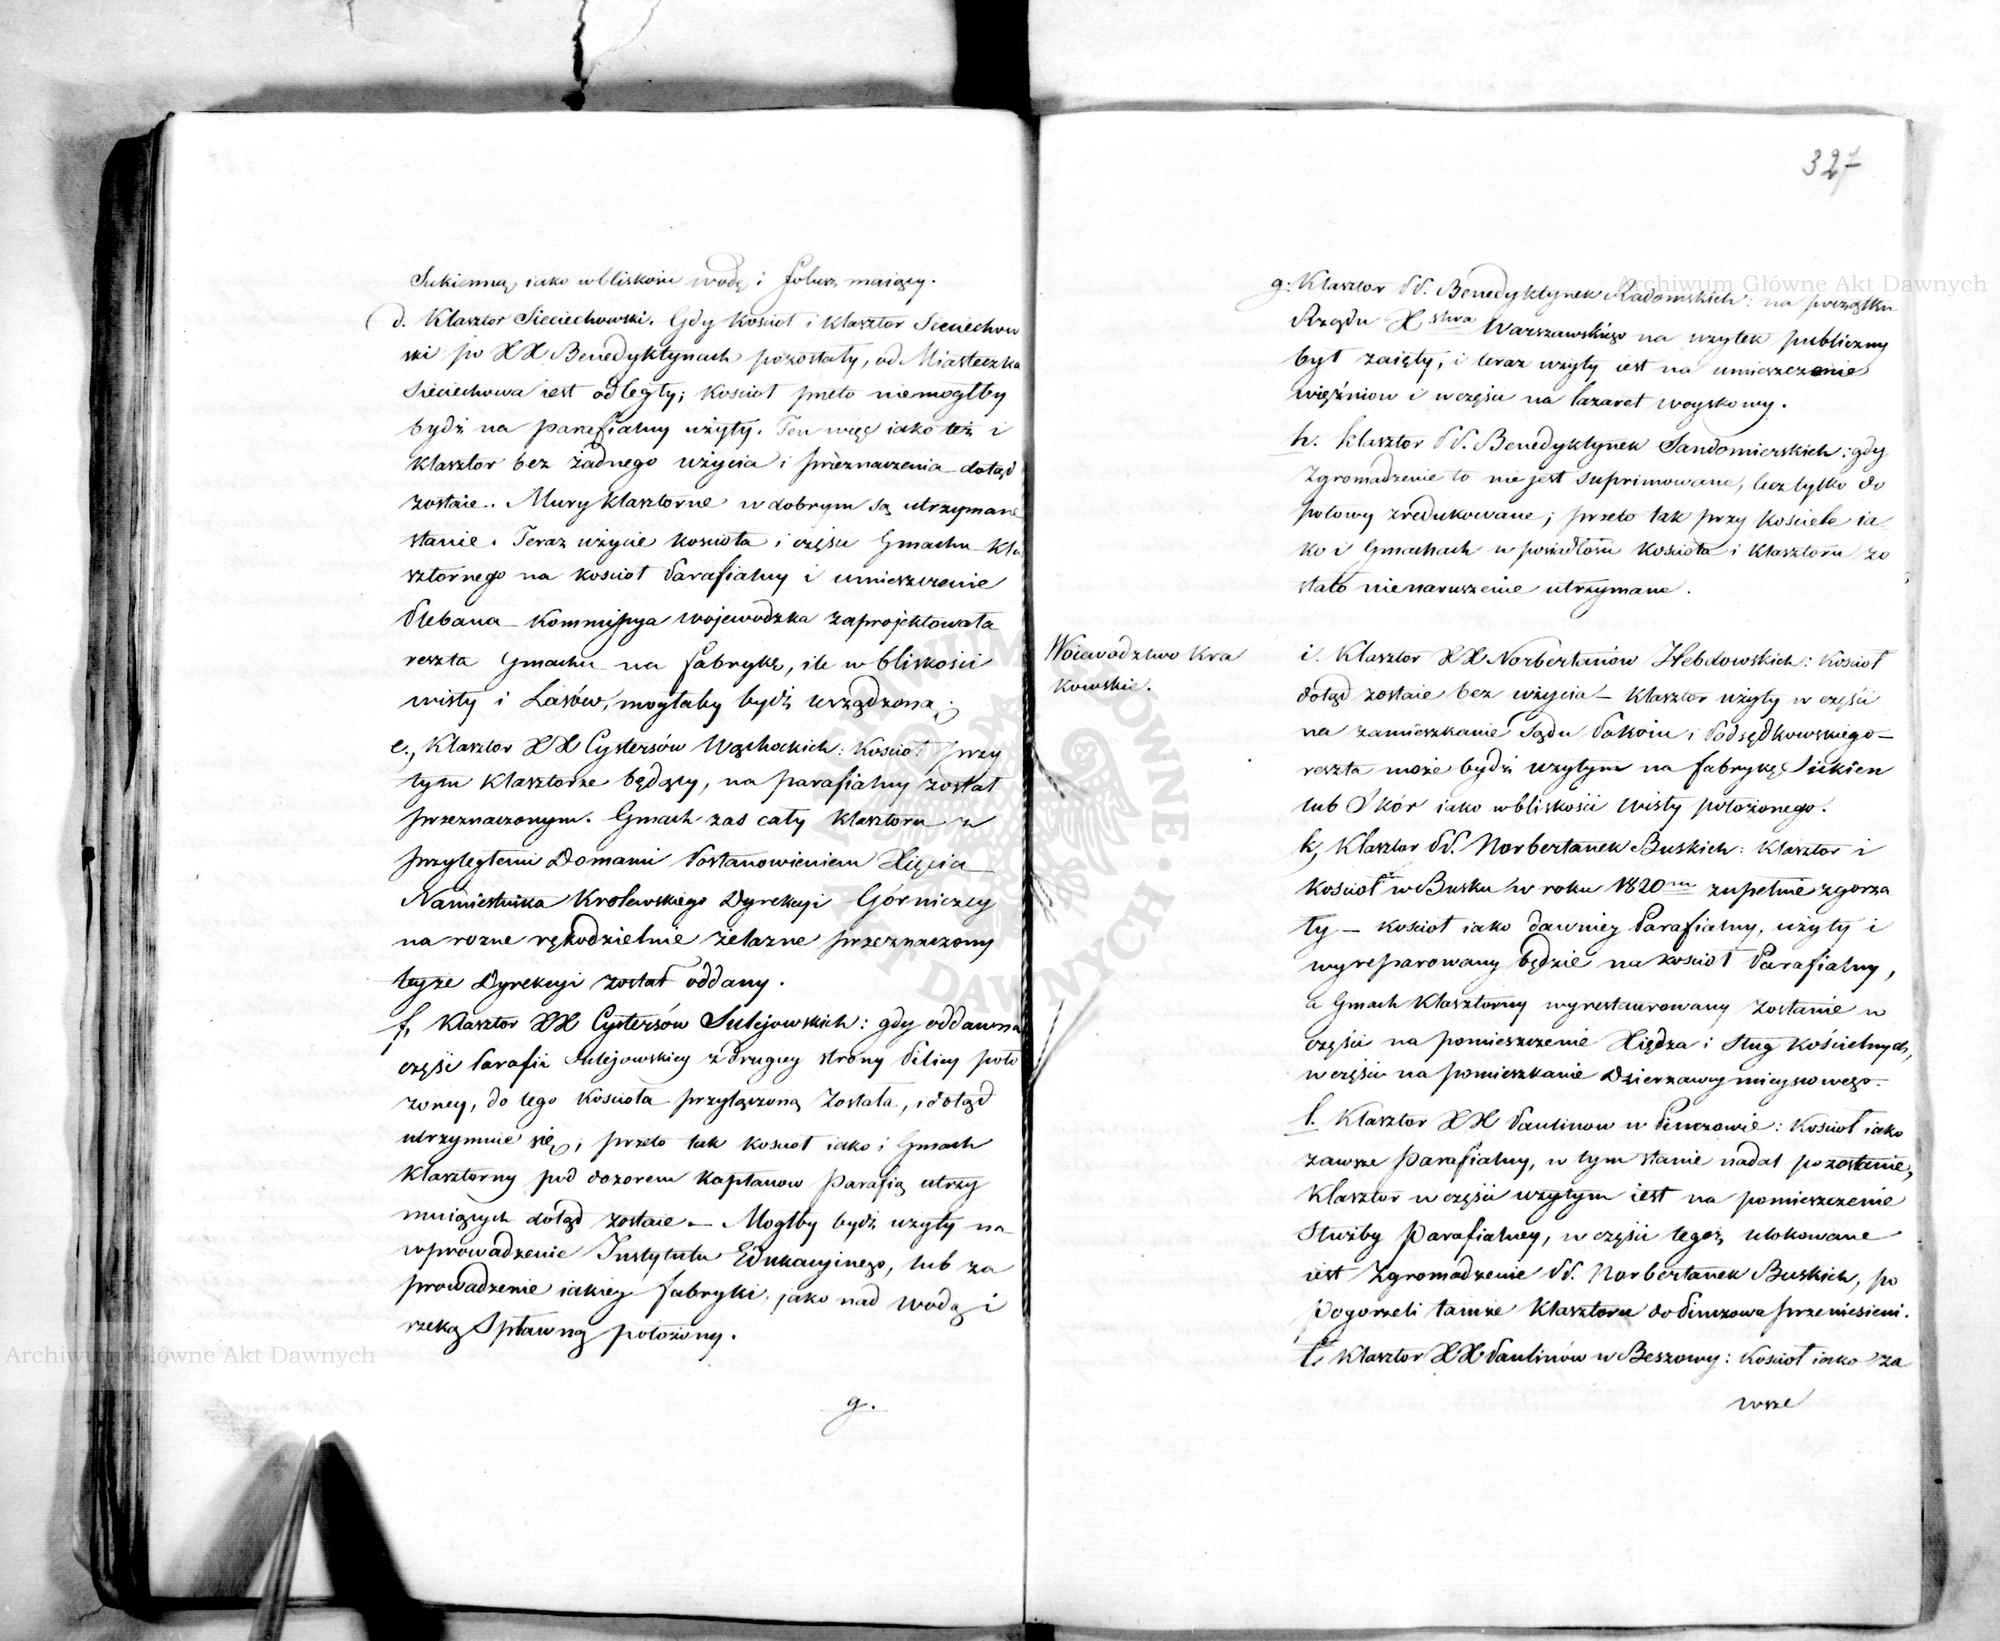 Sukienną iako w bliskości wodę i folusz maiący.
d. Klasztor Sieciechowski. Gdy Kościoł i Klasztor Sieciechow
ski po XX Benedyktynach pozostały, od Miasteczka
Sieciechowa iest odległy; Kościoł przeto niemogłby
bydź na parafialny użyty. Ten więc iako też i
Klasztor bez żadnego użycia i przeznaczenia dotąd
zostaie. Mury klasztorne w dobrym są utrzymane
stanie. Teraz użycie kościoła i części Gmachu Kla
sztornego na kościoł Parafialny i umieszczenie
Plebana Kommissya wojewodzka zaprojektowała
reszta Gmachu na fabrykę, ile w bliskości
wisły i Lasów, mogłaby bydź urządzona;
e., Klasztor XX Cystersów Wąchockich: Kościoł przy
tym Klasztorze będący, na parafialny został
przeznaczonym. Gmach zas cały Klasztoru z
przyległemi Domami Postanowieniem Xięcia
Namiestnika Krolewskiego Dyrekcyi Górniczey
na rozne rękodzielnie żelazne przeznaczony
teyże Dyrekcyi został oddany.
f, Klasztor XX Cystersów Sulejowskich: gdy oddawna
część Parafii Sulejowskiey z drugiey strony Pilicy poło
żoney, do tego Kościoła przyłączoną została, i dotąd
utrzymuie się; przeto tak kościoł iako i Gmach
Klasztorny pod dozorem Kapłanow Parafią utrzy
muiących dotąd zostaie. — Mogłby bydź użyty na
wprowadzenie Instytutu Edukacyinego, lub za
prowadzenie iakiey fabryki, jako nad wodą i
rzeką Spławną położony.
g.
327
g: Klasztor PP. Benedyktynek Radomskich: na początku
Rządu X stwa Warszawskiego na użytek publiczny
był zaięty, i teraz użyty iest na umieszczenie
więźniow i w części na lazaret woyskowy.
h. Klasztor PP. Benedyktynek Sandomierskich: gdy
Zgromadzenie to nie jest suprimowane, lecz tylko do
połowy zredukowane; przeto tak przy Kościele ia
ko i Gmachach w posiadłości Kościoła i Klasztoru zo
stało nienaruszenie utrzymane.
Woiewodztwo Kra
kowskie.
i. Klasztor XX Norbertanów Hebdowskich: Kościoł
dotąd zostaie bez użycia — Klasztor użyty w części
na zamieszkanie Sądu Pokoiu i Podsędkowskiego —
reszta może bydź użytym na fabrykę Sukien
lub Skór iako w bliskości Wisły położonego.
k, Klasztor PP. Norbertanek Buskich: Klasztor i
Kościoł w Busku w roku 1820m zupełnie zgorza
ły — kościoł iako dawniey Parafialny, użyty i
wyreparowany będzie na kościoł Parafialny,
a Gmach Klasztorny wyrestaurowany zostanie w
części na pomieszczenie Xiędza i Sług Kościelnych,
w części na pomieszkanie Dzierzawcy mieyscowego.
l. Klasztor XX Paulinow w Pinczowie: Kościoł iako
zawsze Parafialny, w tym stanie nadal pozostanie,
Klasztor w części użytym iest na pomieszczenie
Służby Parafialney, w części tegoż, ulokowane
iest Zgromadzenie PP. Norbertanek Buskich, po
pogorzeli tamże Klasztoru do Pinczowa przeniesieni.
ł, Klasztor XX Paulinów w Beszowy: Kościoł iako za
wsze
Archiwum Główne Akt Dawnych
Archiwum Główne Akt Dawnych